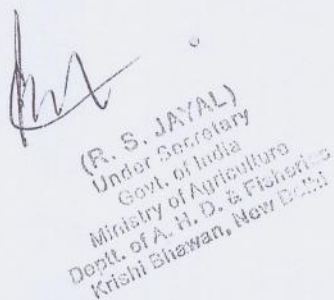 (R. S. JAYAL)
Under Secretary
Govt. of India
Ministry of Agriculture
Deptt. of A. H. D. & Fisheries
Krishi Bhawan, New Delhi